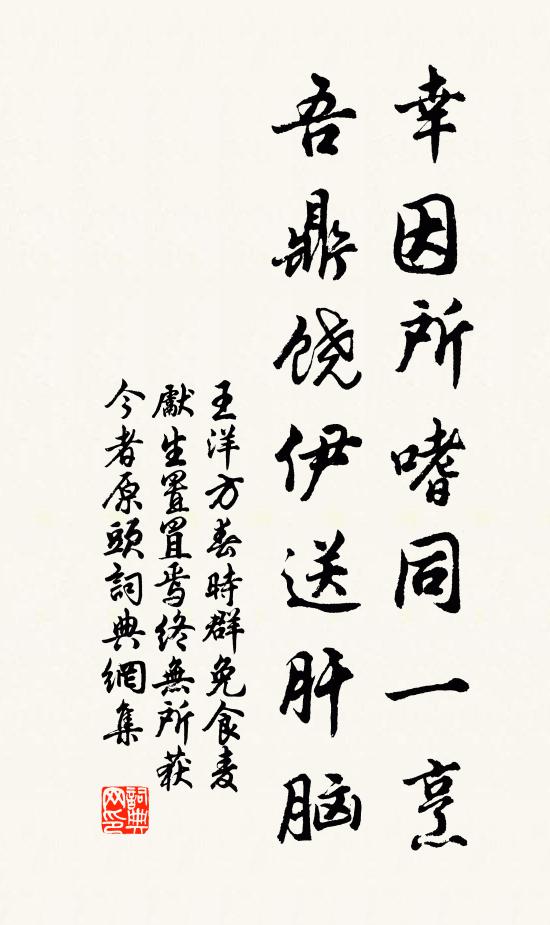 幸因所嗜同一烹
吾鼎饶伊送肝脑
王洋方春時群兔食麦
獻生置罝焉終無所获
今者原頭詞典網集
詞典
网印